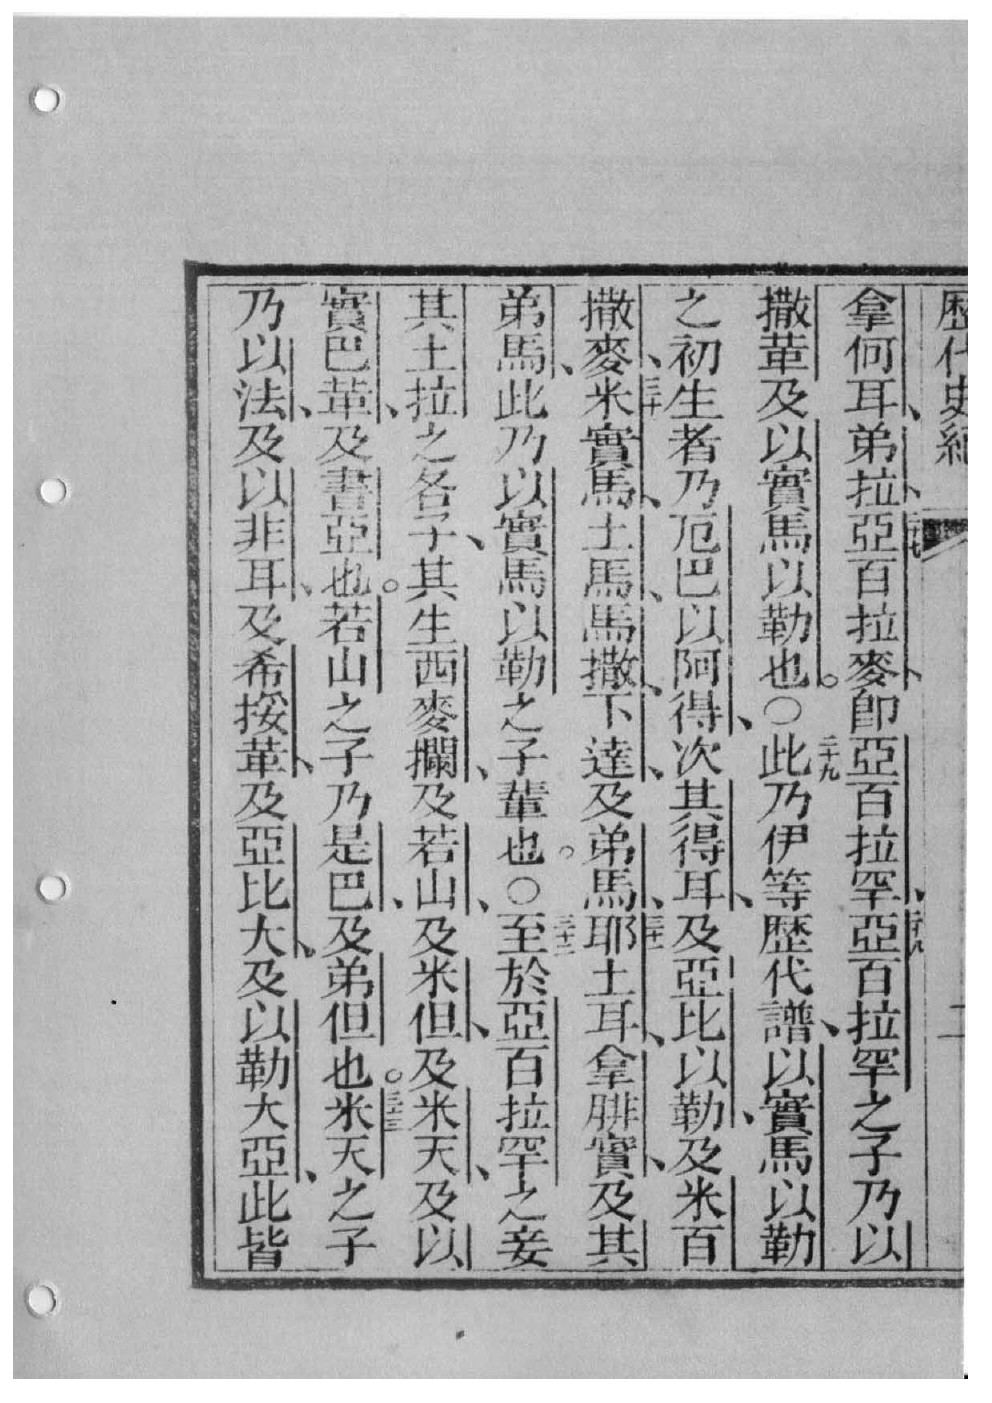 歷代史紀 二
拿何耳、弟拉、二十七亞百拉麥、卽亞百拉罕、二十八亞百拉罕之子乃以
撒革及以實馬以勒也。○二十九此乃伊等歷代譜、以實馬以勒
之初生者乃厄巴以阿得、次其得耳、及亞比以勒、及米百
撒麥、三十米實馬、土馬、馬撒、下達、及弟馬、三十一耶土耳、拿腓實、及其
弟馬、此乃以實馬以勒之子輩也。○三十二至於亞百拉罕之妾
其土拉之各子、其生西麥攔、及若山、及米但、及米天、及以
實巴革、及書亞也。若山之子乃是巴、及弟但也。三十三米天之子
乃以法、及以非耳、及希挼革、及亞比大、及以勒大亞、此皆